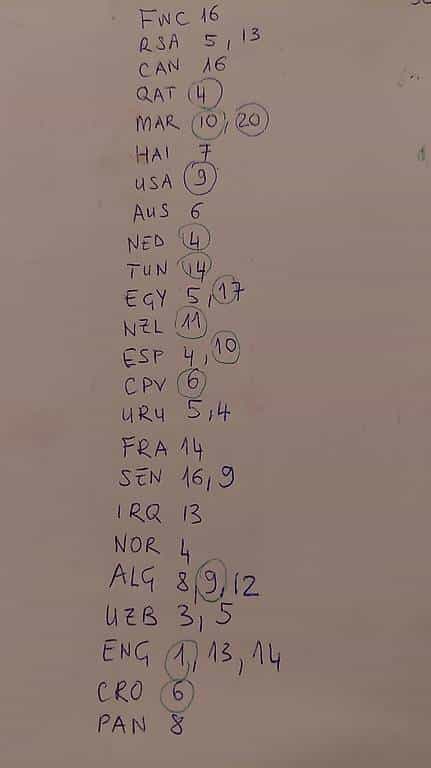 FWC 16
RSA 5, 13
CAN 16
QAT 4
MAR 10, 20
HAI 7
USA 9
AUS 6
NED 4
TUN 14
EGY 5, 17
NZL 11
ESP 4, 10
CPV 6
URU 5, 4
FRA 14
SEN 16, 9
IRQ 13
NOR 4
ALG 8, 9, 12
UZB 3, 5
ENG 1, 13, 14
CRO 6
PAN 8